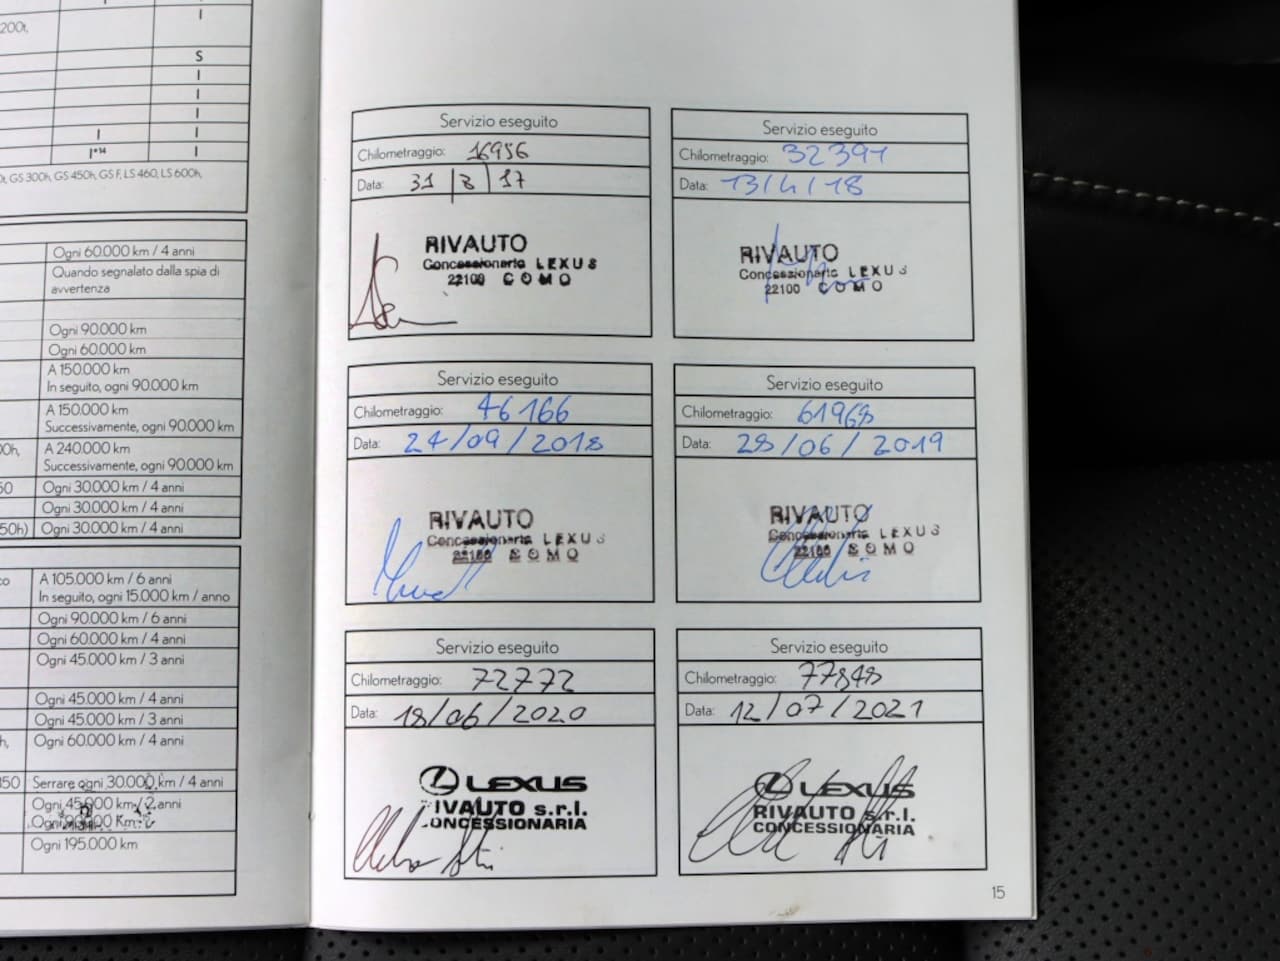 200t,
I
S
I
I
I
I I
I*14 I
GS 300h, GS 450h, GS F, LS 460, LS 600h,
Ogni 60.000 km / 4 anni
Quando segnalato dalla spia di
avvertenza
Ogni 90.000 km
Ogni 60.000 km
A 150.000 km
In seguito, ogni 90.000 km
A 150.000 km
Successivamente, ogni 90.000 km
00h, A 240.000 km
Successivamente, ogni 90.000 km
50 Ogni 30.000 km / 4 anni
Ogni 30.000 km / 4 anni
50h) Ogni 30.000 km / 4 anni
co A 105.000 km / 6 anni
In seguito, ogni 15.000 km / anno
Ogni 90.000 km / 6 anni
Ogni 60.000 km / 4 anni
Ogni 45.000 km / 3 anni
Ogni 45.000 km / 4 anni
Ogni 45.000 km / 3 anni
h, Ogni 60.000 km / 4 anni
350 Serrare ogni 30.000 km / 4 anni
Ogni 45.000 km / 2 anni
Ogni 90.000 Km
Ogni 195.000 km
Servizio eseguito
Chilometraggio: 16956
Data: 31/8/17
RIVAUTO
Concessionaria LEXUS
22100 COMO
Servizio eseguito
Chilometraggio: 32391
Data: 13/4/18
RIVAUTO
Concessionaria LEXUS
22100 COMO
Servizio eseguito
Chilometraggio: 46166
Data: 24/09/2018
RIVAUTO
Concessionaria LEXUS
22100 COMO
Servizio eseguito
Chilometraggio: 61968
Data: 28/06/2019
RIVAUTO
Concessionaria LEXUS
22100 COMO
Servizio eseguito
Chilometraggio: 72772
Data: 18/06/2020
LEXUS
IVAUTO s.r.l.
ONCESSIONARIA
Servizio eseguito
Chilometraggio: 77848
Data: 12/07/2021
LEXUS
RIVAUTO s.r.l.
CONCESSIONARIA
15